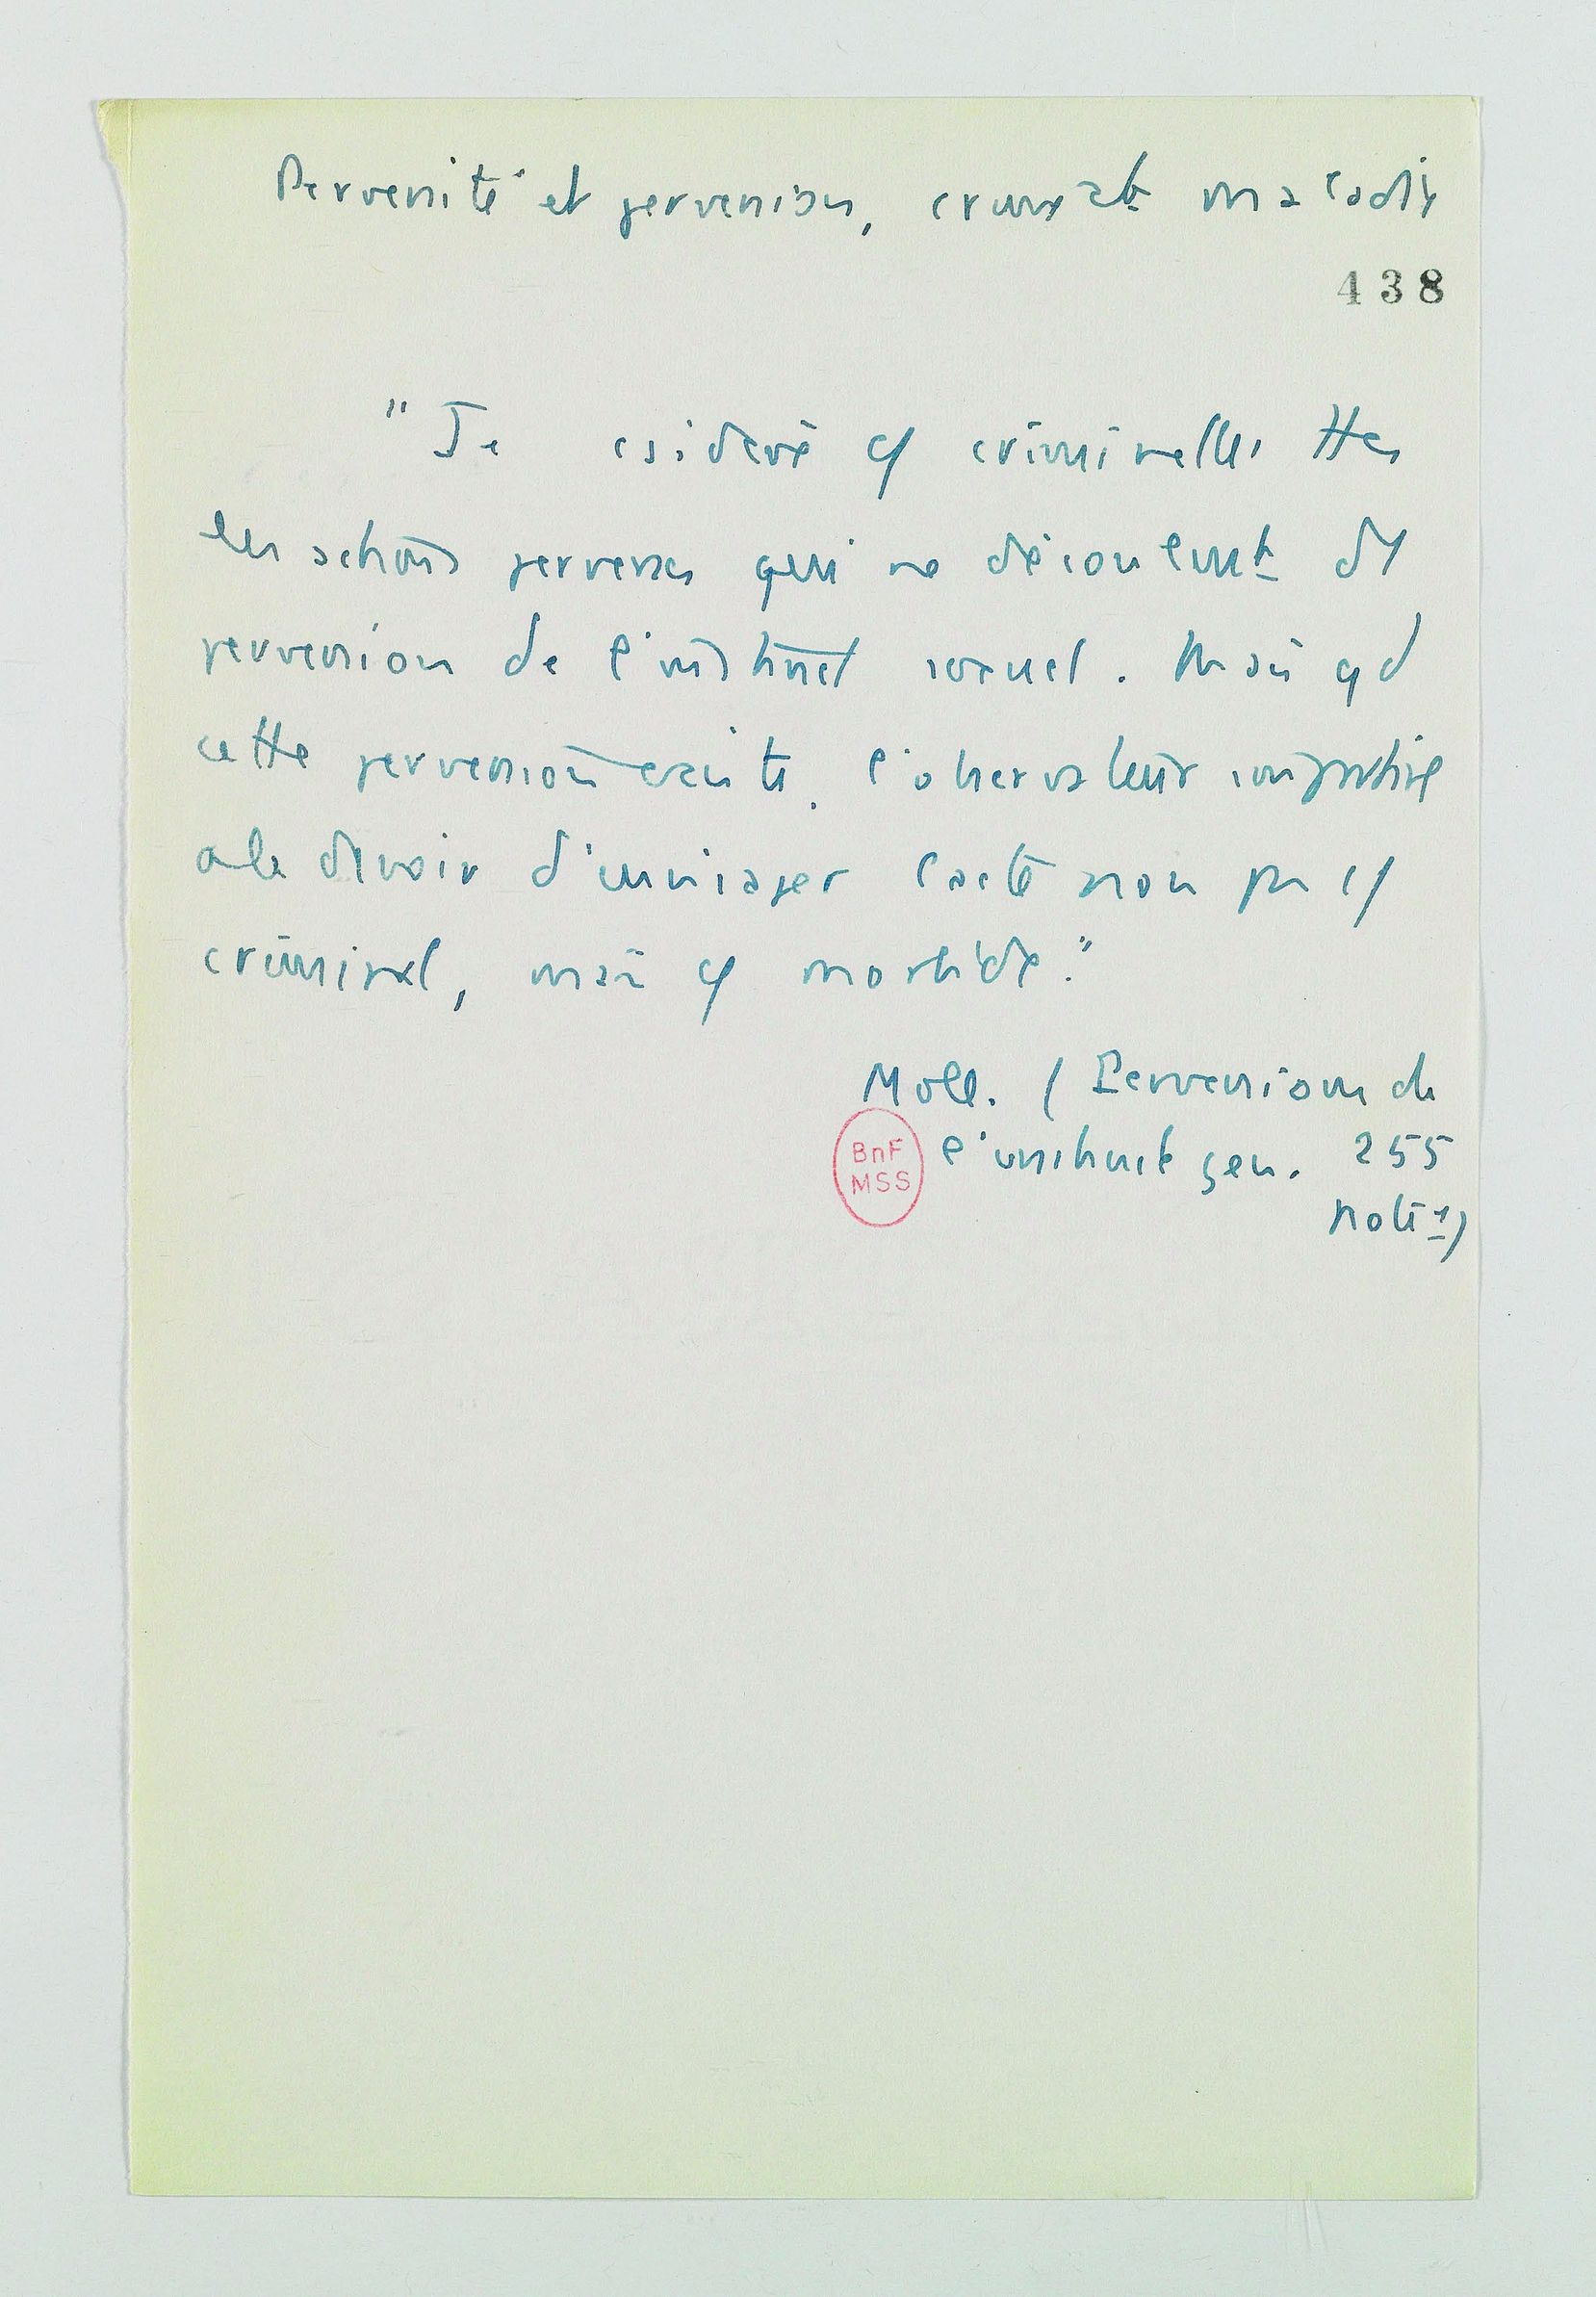 Perversité et perversion, crime et maladie
438
"Je csidère c/ criminelles ttes
les actions perverses qui ne découlent d'1
perversion de l'instinct sexuel. Mais qd
cette perversion existe, l'observateur impartial
a le devoir d'envisager l'acte non pas c/
criminel, mais c/ morbide."
Moll. (Perversions de
BnF
MSS
l'instinct gen. 255
note 1)